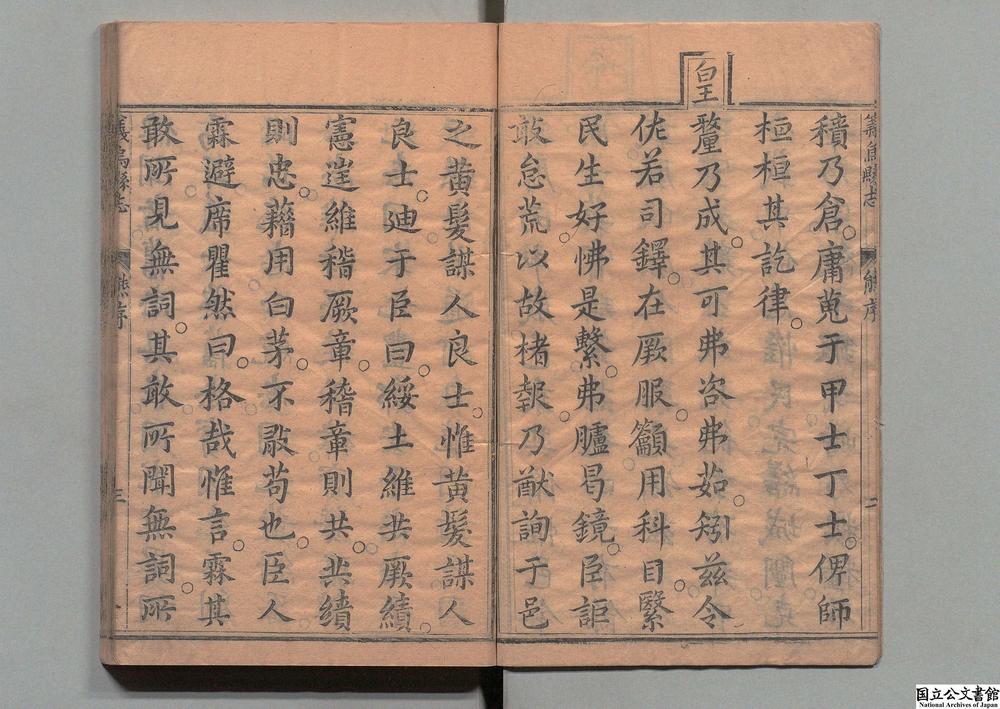 義烏縣志
熊序
二
積乃倉。庸蒐于甲士丁士。俾師
桓桓其訖律。
皇
釐乃成。其可弗咨弗茹。矧茲令
佐若司鐸。在厥服。籲用科目。緊
民生好怫是繫。弗臚曷鏡。臣詎
敢怠荒。以故楮報。乃猷詢于邑
之黃髮謀人良士。惟黃髮謀人
良士。迪于臣曰。綏土維共厥績。
憲遑維稽厥章。稽章則共。共績
則忠。藉用白茅。不敢苟也。臣人
霖避席瞿然曰。格哉惟言。霖其
敢所見無詞。其敢所聞無詞。所
義烏縣志
熊序
三
国立公文書館
National Archives of Japan